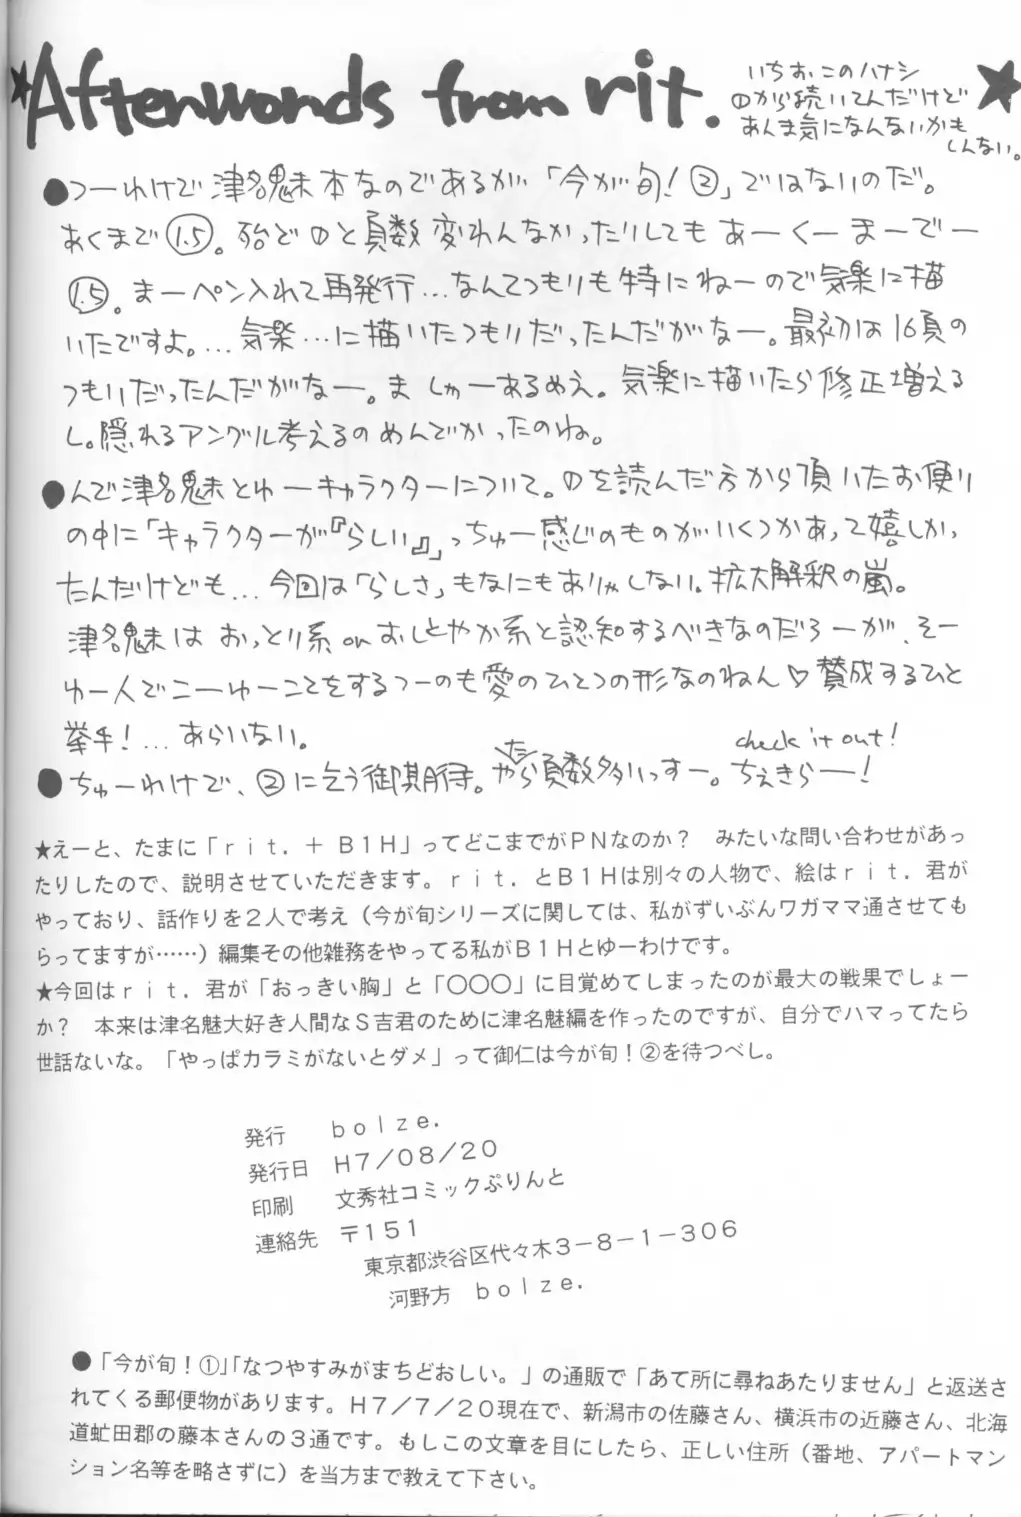 ★Afterwords from rit.★
いちお、このハナシ
①から続いてんだけど
あんま気になんないかも
しんない。
●つーわけで津名魅本なのであるが「今が旬!②」ではないのだ。
あくまで①.⑤。殆ど①と頁数変わんなかったりしてもあーくーまーでー
①.⑤。まーペン入れて再発行…なんてつもりも特にねーので気楽に描
いたですよ。…気楽…に描いたつもりだったんだがなー。最初は16頁の
つもりだったんだがなー。ま しゃーあるめえ。気楽に描いたら修正増える
し。隠れるアングル考えるのめんでかったのね。
●んで津名魅とゆーキャラクターについて。①を読んだ方から頂いたお便り
の中に「キャラクターが『らしい』」っちゅー感じのものがいくつかあって嬉しかっ
たんだけども…今回は「らしさ」もなにもありゃしない。拡大解釈の嵐。
津名魅は おっとり系 or おしとやか系と認知するべきなのだろーが、そー
ゆー人でこーゆーことをするつーのも愛のひとつの形なのねん♡賛成するひと
挙手!…あらいない。
●ちゅーわけで、②に乞う御期待。やたら頁数多いっすー。ちぇきらー!
check it out!
★えーと、たまに「rit.+B1H」ってどこまでがPNなのか? みたいな問い合わせがあっ
たりしたので、説明させていただきます。rit.とB1Hは別々の人物で、絵はrit.君が
やっており、話作りを2人で考え(今が旬シリーズに関しては、私がずいぶんワガママ通させても
らってますが……)編集その他雑務をやってる私がB1Hとゆーわけです。
★今回はrit.君が「おっきい胸」と「○○○」に目覚めてしまったのが最大の戦果でしょー
か? 本来は津名魅大好き人間なS吉君のために津名魅編を作ったのですが、自分でハマってたら
世話ないな。「やっぱカラミがないとダメ」って御仁は今が旬!②を待つべし。
発行 bolze.
発行日 H7/08/20
印刷 文秀社コミックぷりんと
連絡先 〒151
東京都渋谷区代々木3-8-1-306
河野方 bolze.
●「今が旬!①」「なつやすみがまちどおしい。」の通販で「あて所に尋ねあたりません」と返送さ
れてくる郵便物があります。H7/7/20現在で、新潟市の佐藤さん、横浜市の近藤さん、北海
道虻田郡の藤本さんの3通です。もしこの文章を目にしたら、正しい住所(番地、アパートマン
ション名等を略さずに)を当方まで教えて下さい。